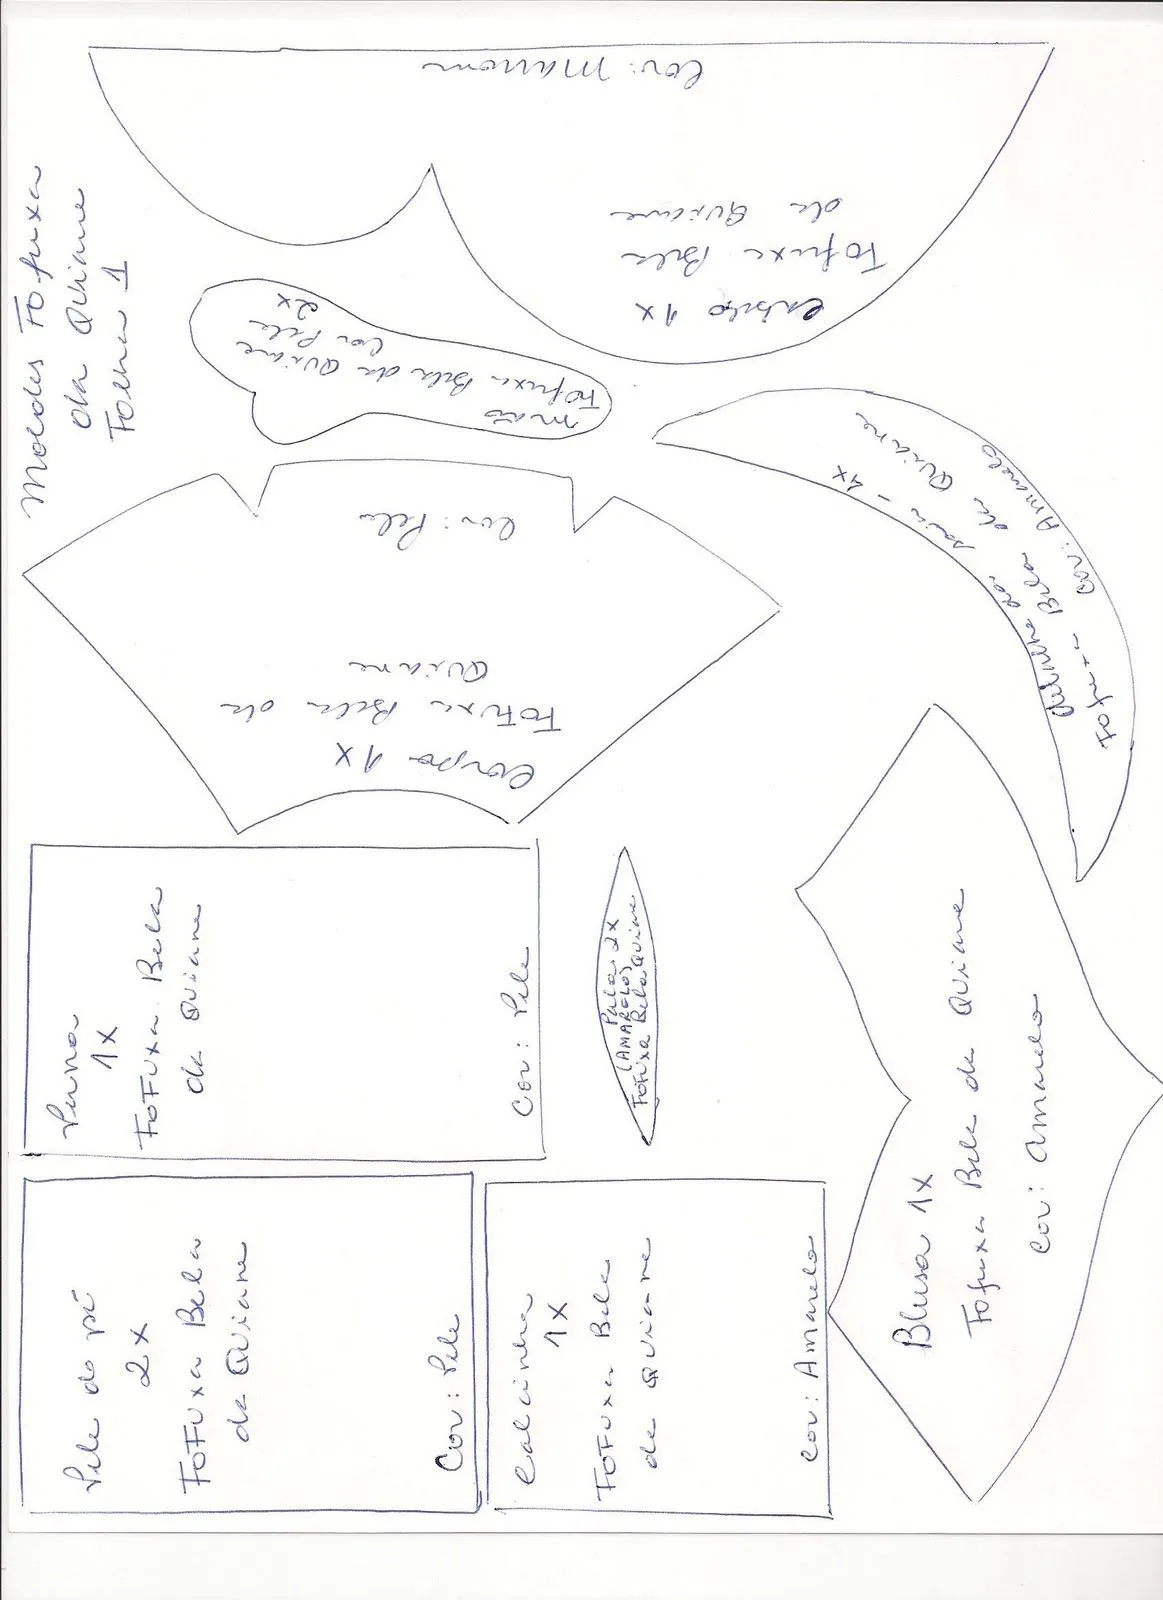 Moldes Fofuxa
da Quiane
Folha 1
Cor: Marrom
Cabelo 1x
Fofuxa Bela
da Quiane
mão
Fofuxa Bela da Quiane
Cor Pele
2x
Cor: Pele
Corpo 1x
Fofuxa Bela da
Quiane
da saia - 4x
Fofuxa Bela da Quiane
Cor: Amarelo
Perna
1x
FOFUXA Bela
da Quiane
Cor: Pele
Pala 2x
(AMARELO)
FOFUXA Bela Quiane
Pele do pé
2x
FOFUXA Bela
da Quiane
Cor: Pele
Calcinha
1x
FOFUXA Bela
da Quiane
Cor: Amarelo
Blusa 1x
Fofuxa Bela da Quiane
Cor: Amarelo